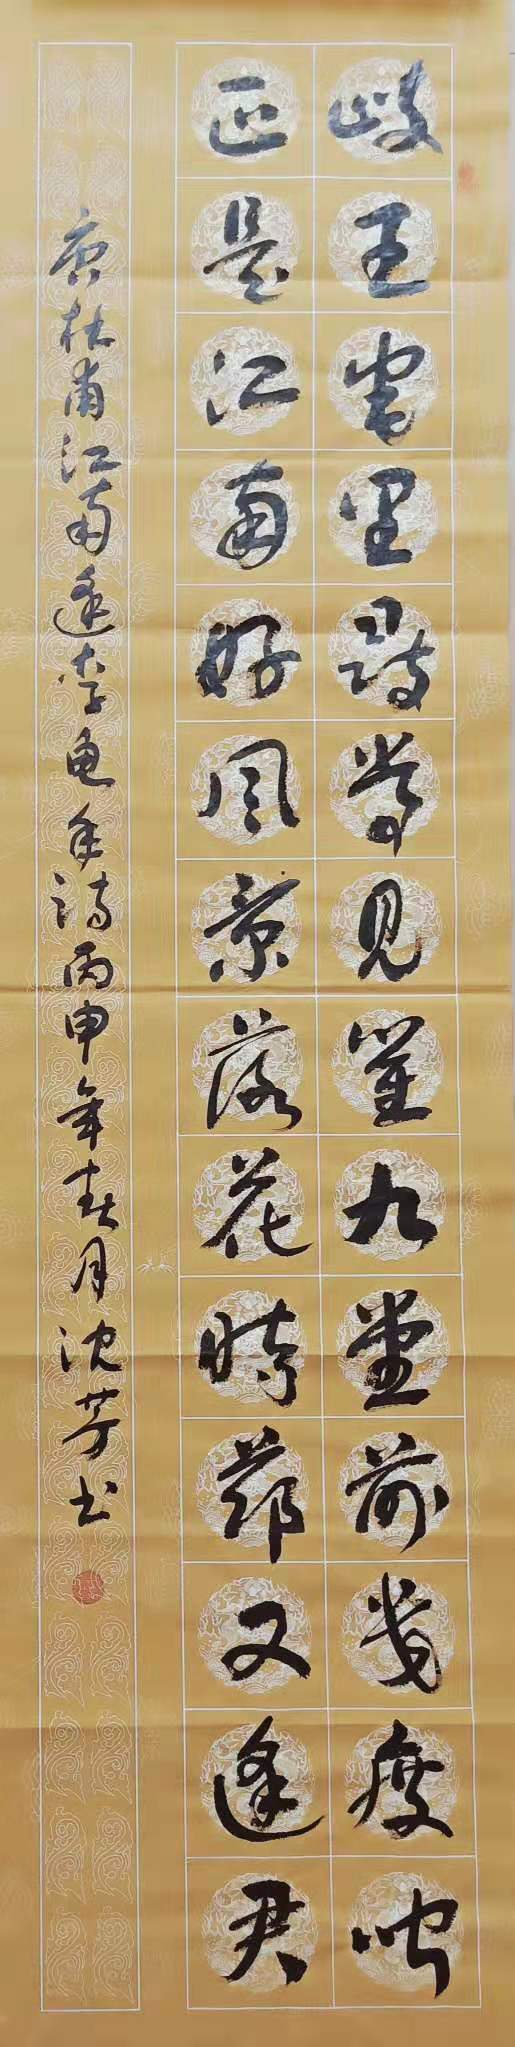 岐王宅里寻常见崔九堂前几度闻
正是江南好风景落花时节又逢君
唐杜甫江南逢李龟年诗丙申年春月沈芳书